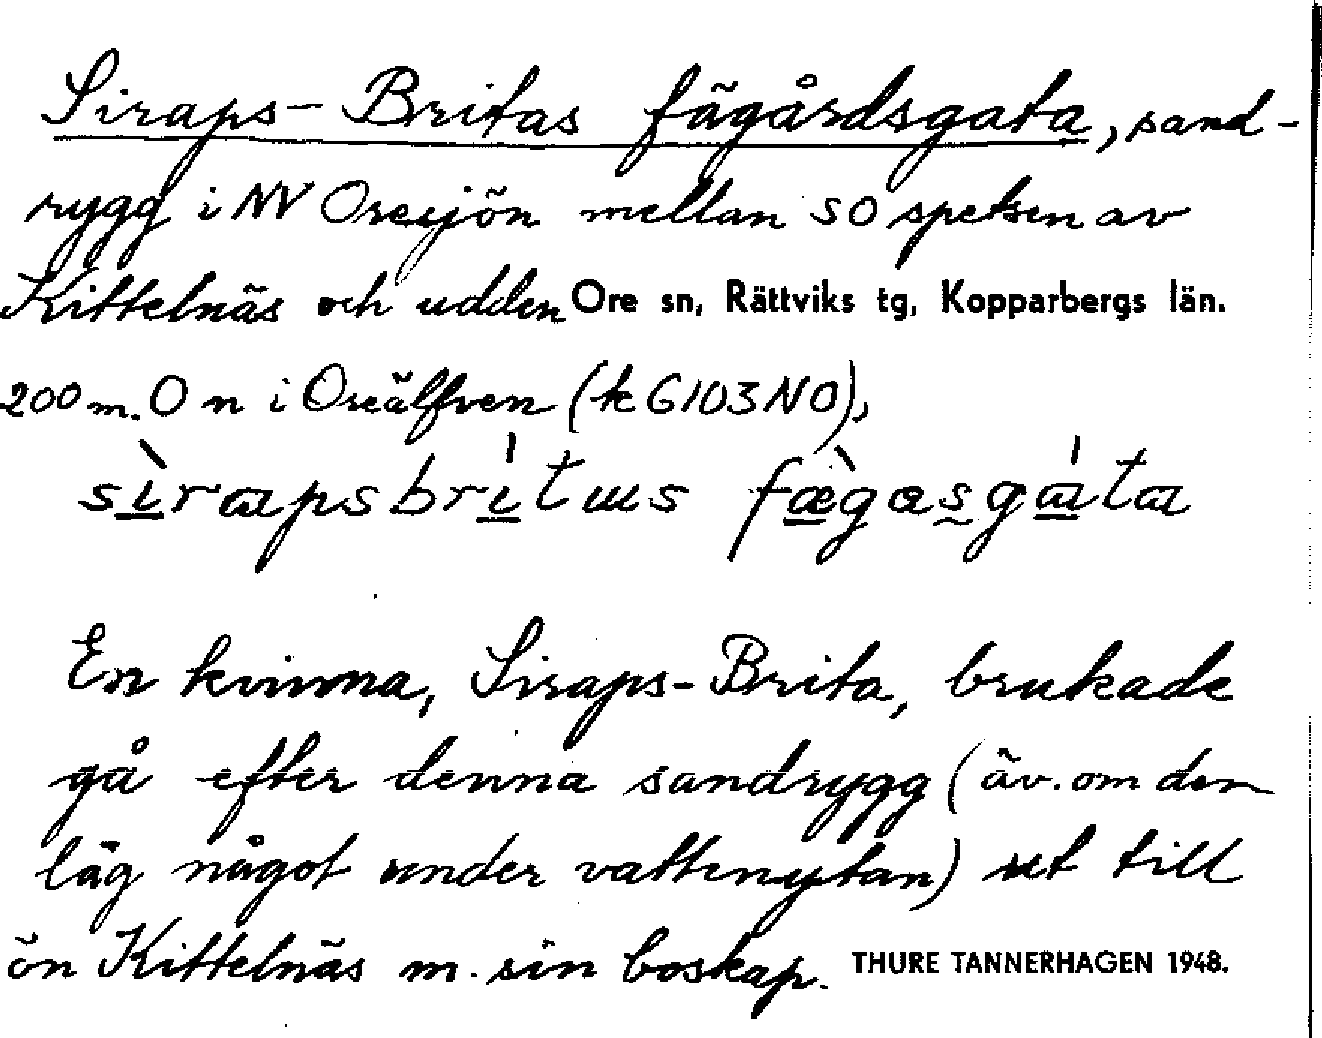 Siraps-Britas fägårdsgata, sand-
rygg i NV Oresjön mellan SO spetsen av
Kittelnäs och udden Ore sn, Rättviks tg, Kopparbergs län.
200 m. O n i Oreälfven (k G103NO),
sìrapsbrítas fæ̀gasgáta
En kvinna, Siraps-Brita, brukade
gå efter denna sandrygg (äv. om den
låg något under vattenytan) ut till
ön Kittelnäs m. sin boskap. THURE TANNERHAGEN 1948.